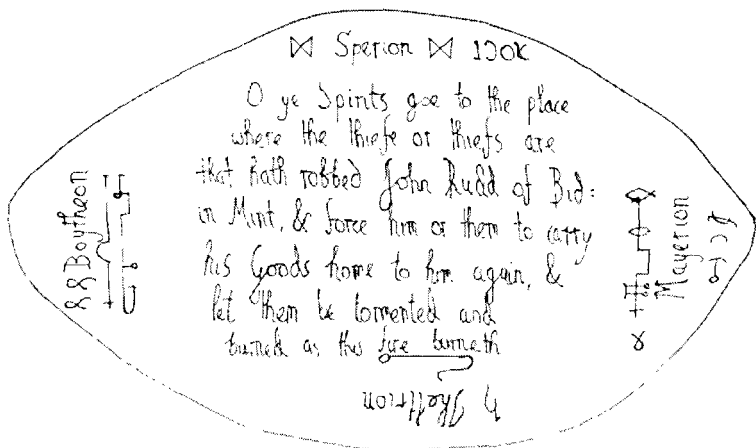 Sperion
O ye Spirits goe to the place
where the thiefe or thiefs are
that hath robbed John Rudd of Bid:
in Mint, & force him or them to carry
his Goods home to him again, &
let them be tormented and
burned as this fire burneth
Boytheon
Mayerion
Theltrion